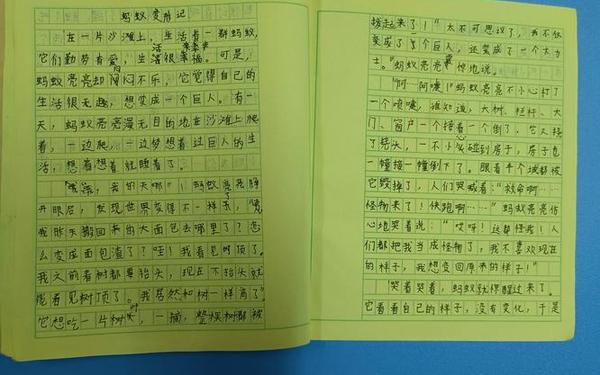 蚂蚁变身记
在一片沙滩上，生活着一群蚂蚁，
它们勤劳有爱，生活很幸福。可是，
蚂蚁亮亮却闷闷不乐，它觉得自己的
生活很无趣，想变成一个巨人。有一
天，蚂蚁亮亮漫无目的地在沙滩上爬
着，一边爬，一边梦想着过巨人的生
活，想着想着就睡着了。
我的天哪！"蚂蚁亮亮睁
开眼后，发现世界变得不一样了，
我昨天搬回来的大面包去哪里了？怎
么变成面包渣了？哇！我看见树顶了。
我之前看树都要抬头，现在不抬头就
能看见树顶了。我居然和树一样高了"
它想吃一片树叶，一摘，整棵树都被
拔起来了！"太不可思议了，我不仅
变成了一个巨人，还变成了一个大力
士。"蚂蚁亮亮惊地说。
"阿——阿嚏！"蚂蚁亮亮不小心打了
一个喷嚏，谁知道，大树、栏杆、大
门、窗户一个接着一个倒了，它又挠
了挠头，一不小心碰到房子，房子也
一幢接一幢倒下了。眼看半个城都被
它毁掉了，人们哭喊着："救命啊……
怪物来了！快跑啊……"蚂蚁亮亮伤
心地哭着说："哎呀！这都怪我！人
们都把我当成怪物了，我不喜欢现在
的样子，我想变回原来的样子！"
哭着哭着，蚂蚁就得醒过来了。
它看看自己的样子，没有变化，于是